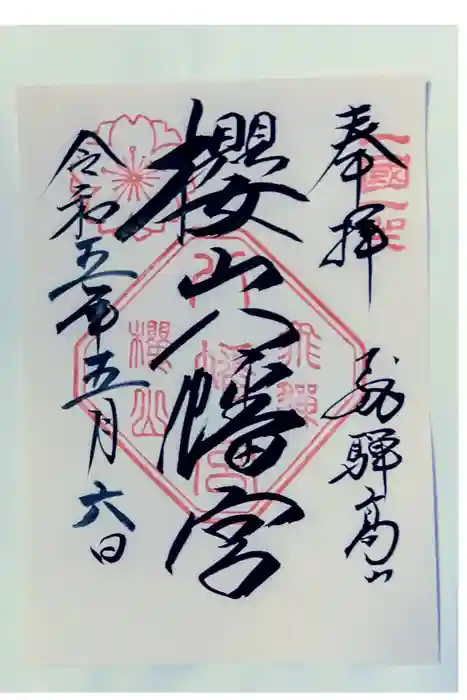 奉拝
飛騨高山
櫻山八幡宮
令和五年五月六日
飛騨
八幡宮
櫻山